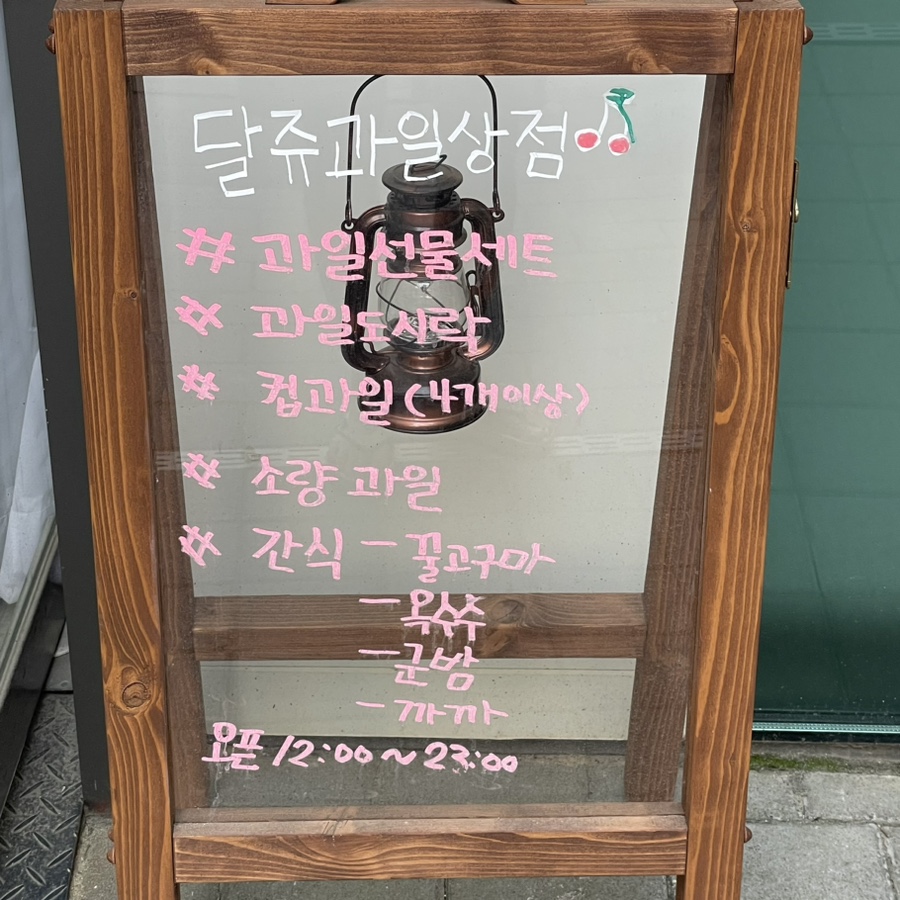 달쥬과일상점
# 과일선물세트
# 과일도시락
# 컵과일 (4개이상)
# 소량 과일
# 간식 - 꿀고구마
- 옥수수
- 군밤
- 까까
오픈 12:00 ~ 23:00